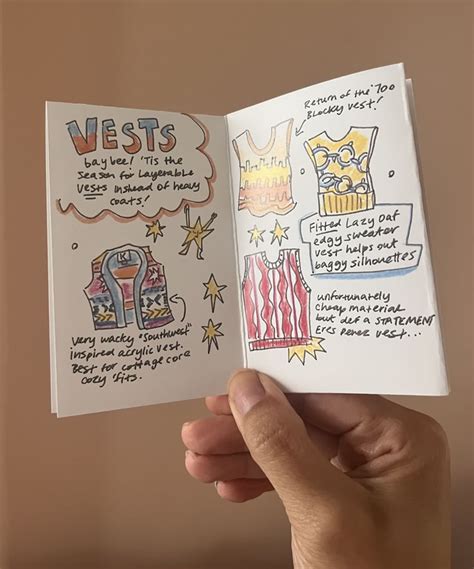 VESTS
baybee! 'Tis the
season for layerable
vests instead of heavy
coats!
Very wacky "southwest"
inspired acrylic vest.
Best for cottage core
cozy 'fits.
Return of the '700
Blocky vest!
Fitted Lazy Oaf
edgy sweater
vest helps out
baggy silhouettes
unfortunately
cheap material
but def a STATEMENT
Eres Perez vest...